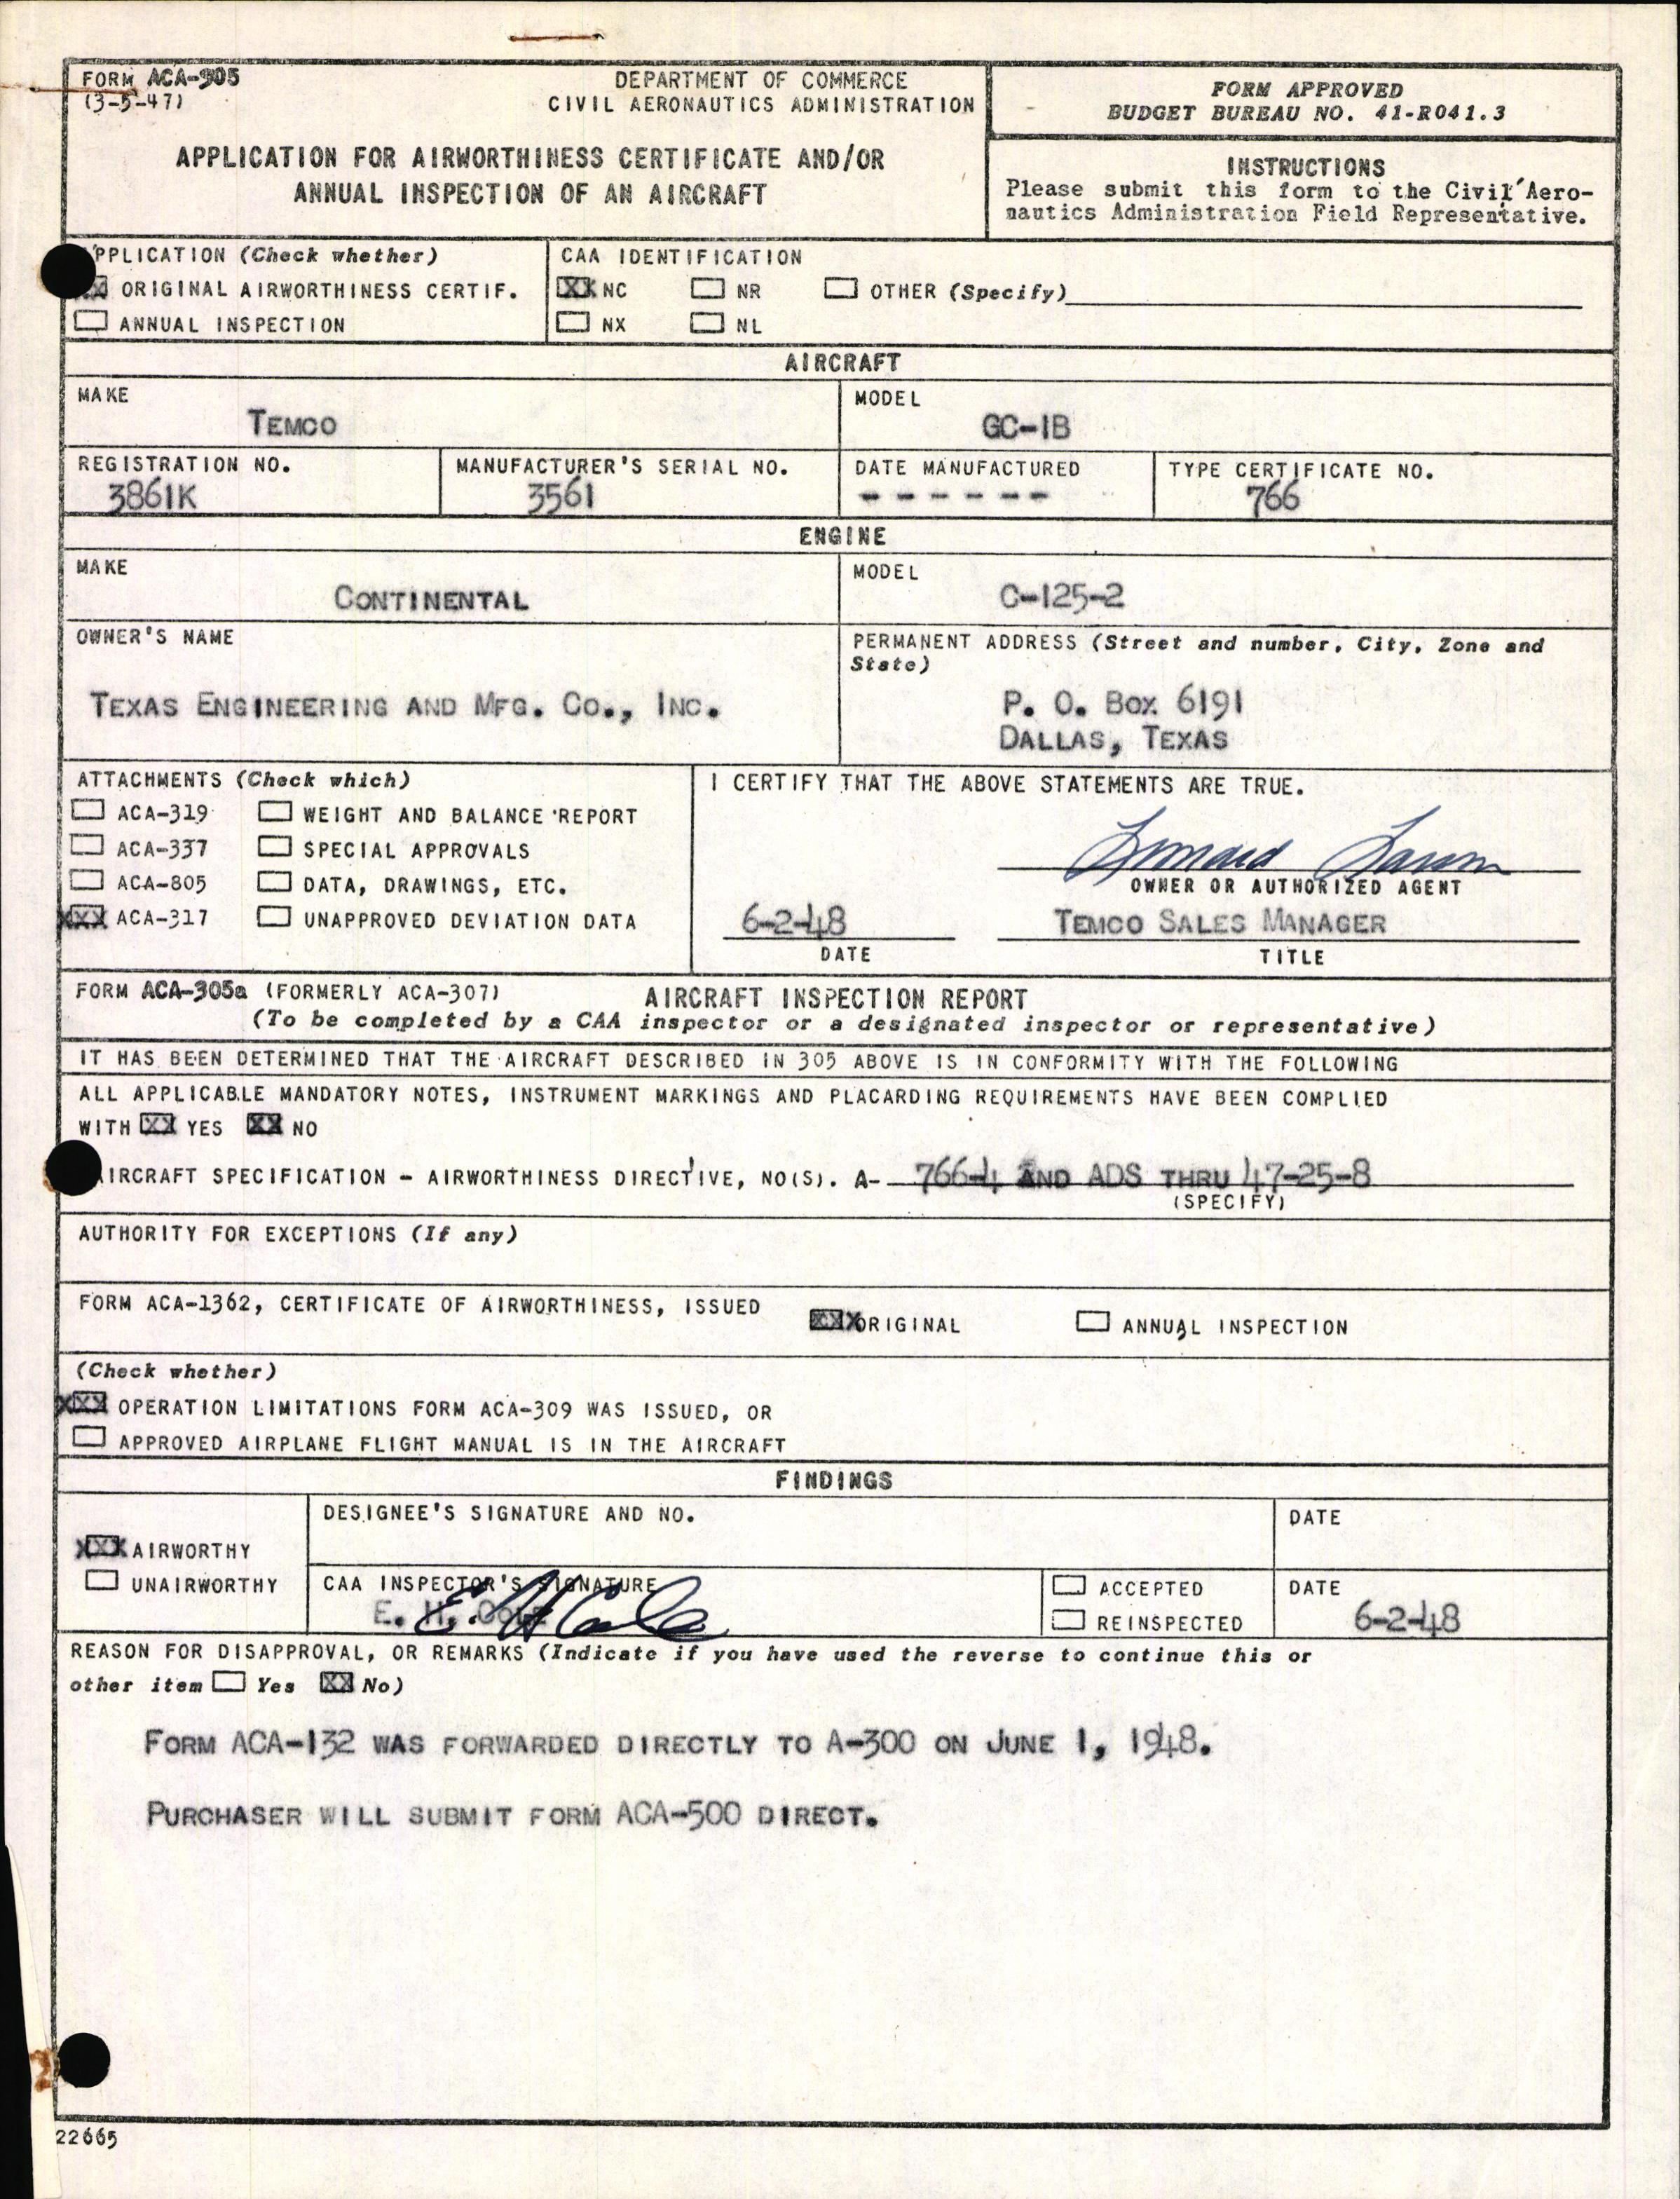 FORM ACA-305
(3-5-47)
DEPARTMENT OF COMMERCE
CIVIL AERONAUTICS ADMINISTRATION
APPLICATION FOR AIRWORTHINESS CERTIFICATE AND/OR
ANNUAL INSPECTION OF AN AIRCRAFT
FORM APPROVED
BUDGET BUREAU NO. 41-R041.3
INSTRUCTIONS
Please submit this form to the Civil Aero-
nautics Administration Field Representative.
PPLICATION (Check whether)
XX ORIGINAL AIRWORTHINESS CERTIF.
ANNUAL INSPECTION
CAA IDENTIFICATION
XX NC NR OTHER (Specify)
NX NL
AIRCRAFT
MAKE
TEMCO
MODEL
GC-1B
REGISTRATION NO.
3861K
MANUFACTURER'S SERIAL NO.
3561
DATE MANUFACTURED
- - - - - -
TYPE CERTIFICATE NO.
766
ENGINE
MAKE
CONTINENTAL
MODEL
C-125-2
OWNER'S NAME
TEXAS ENGINEERING AND MFG. CO., INC.
PERMANENT ADDRESS (Street and number, City, Zone and
State)
P. O. BOX 6191
DALLAS, TEXAS
ATTACHMENTS (Check which)
ACA-319 WEIGHT AND BALANCE REPORT
ACA-337 SPECIAL APPROVALS
ACA-805 DATA, DRAWINGS, ETC.
XXX ACA-317 UNAPPROVED DEVIATION DATA
I CERTIFY THAT THE ABOVE STATEMENTS ARE TRUE.
OWNER OR AUTHORIZED AGENT
6-2-48 TEMCO SALES MANAGER
DATE TITLE
FORM ACA-305a (FORMERLY ACA-307) AIRCRAFT INSPECTION REPORT
(To be completed by a CAA inspector or a designated inspector or representative)
IT HAS BEEN DETERMINED THAT THE AIRCRAFT DESCRIBED IN 305 ABOVE IS IN CONFORMITY WITH THE FOLLOWING
ALL APPLICABLE MANDATORY NOTES, INSTRUMENT MARKINGS AND PLACARDING REQUIREMENTS HAVE BEEN COMPLIED
WITH XX YES XX NO
AIRCRAFT SPECIFICATION - AIRWORTHINESS DIRECTIVE, NO(S). A- 766-4 AND ADS THRU 47-25-8
(SPECIFY)
AUTHORITY FOR EXCEPTIONS (If any)
FORM ACA-1362, CERTIFICATE OF AIRWORTHINESS, ISSUED XXX ORIGINAL ANNUAL INSPECTION
(Check whether)
XXX OPERATION LIMITATIONS FORM ACA-309 WAS ISSUED, OR
APPROVED AIRPLANE FLIGHT MANUAL IS IN THE AIRCRAFT
FINDINGS
XXX AIRWORTHY
UNAIRWORTHY
DESIGNEE'S SIGNATURE AND NO.
DATE
CAA INSPECTOR'S SIGNATURE
E. H. COLE
E H Cole
ACCEPTED
REINSPECTED
DATE
6-2-48
REASON FOR DISAPPROVAL, OR REMARKS (Indicate if you have used the reverse to continue this or
other item Yes XX No)
FORM ACA-132 WAS FORWARDED DIRECTLY TO A-300 ON JUNE 1, 1948.
PURCHASER WILL SUBMIT FORM ACA-500 DIRECT.
22665